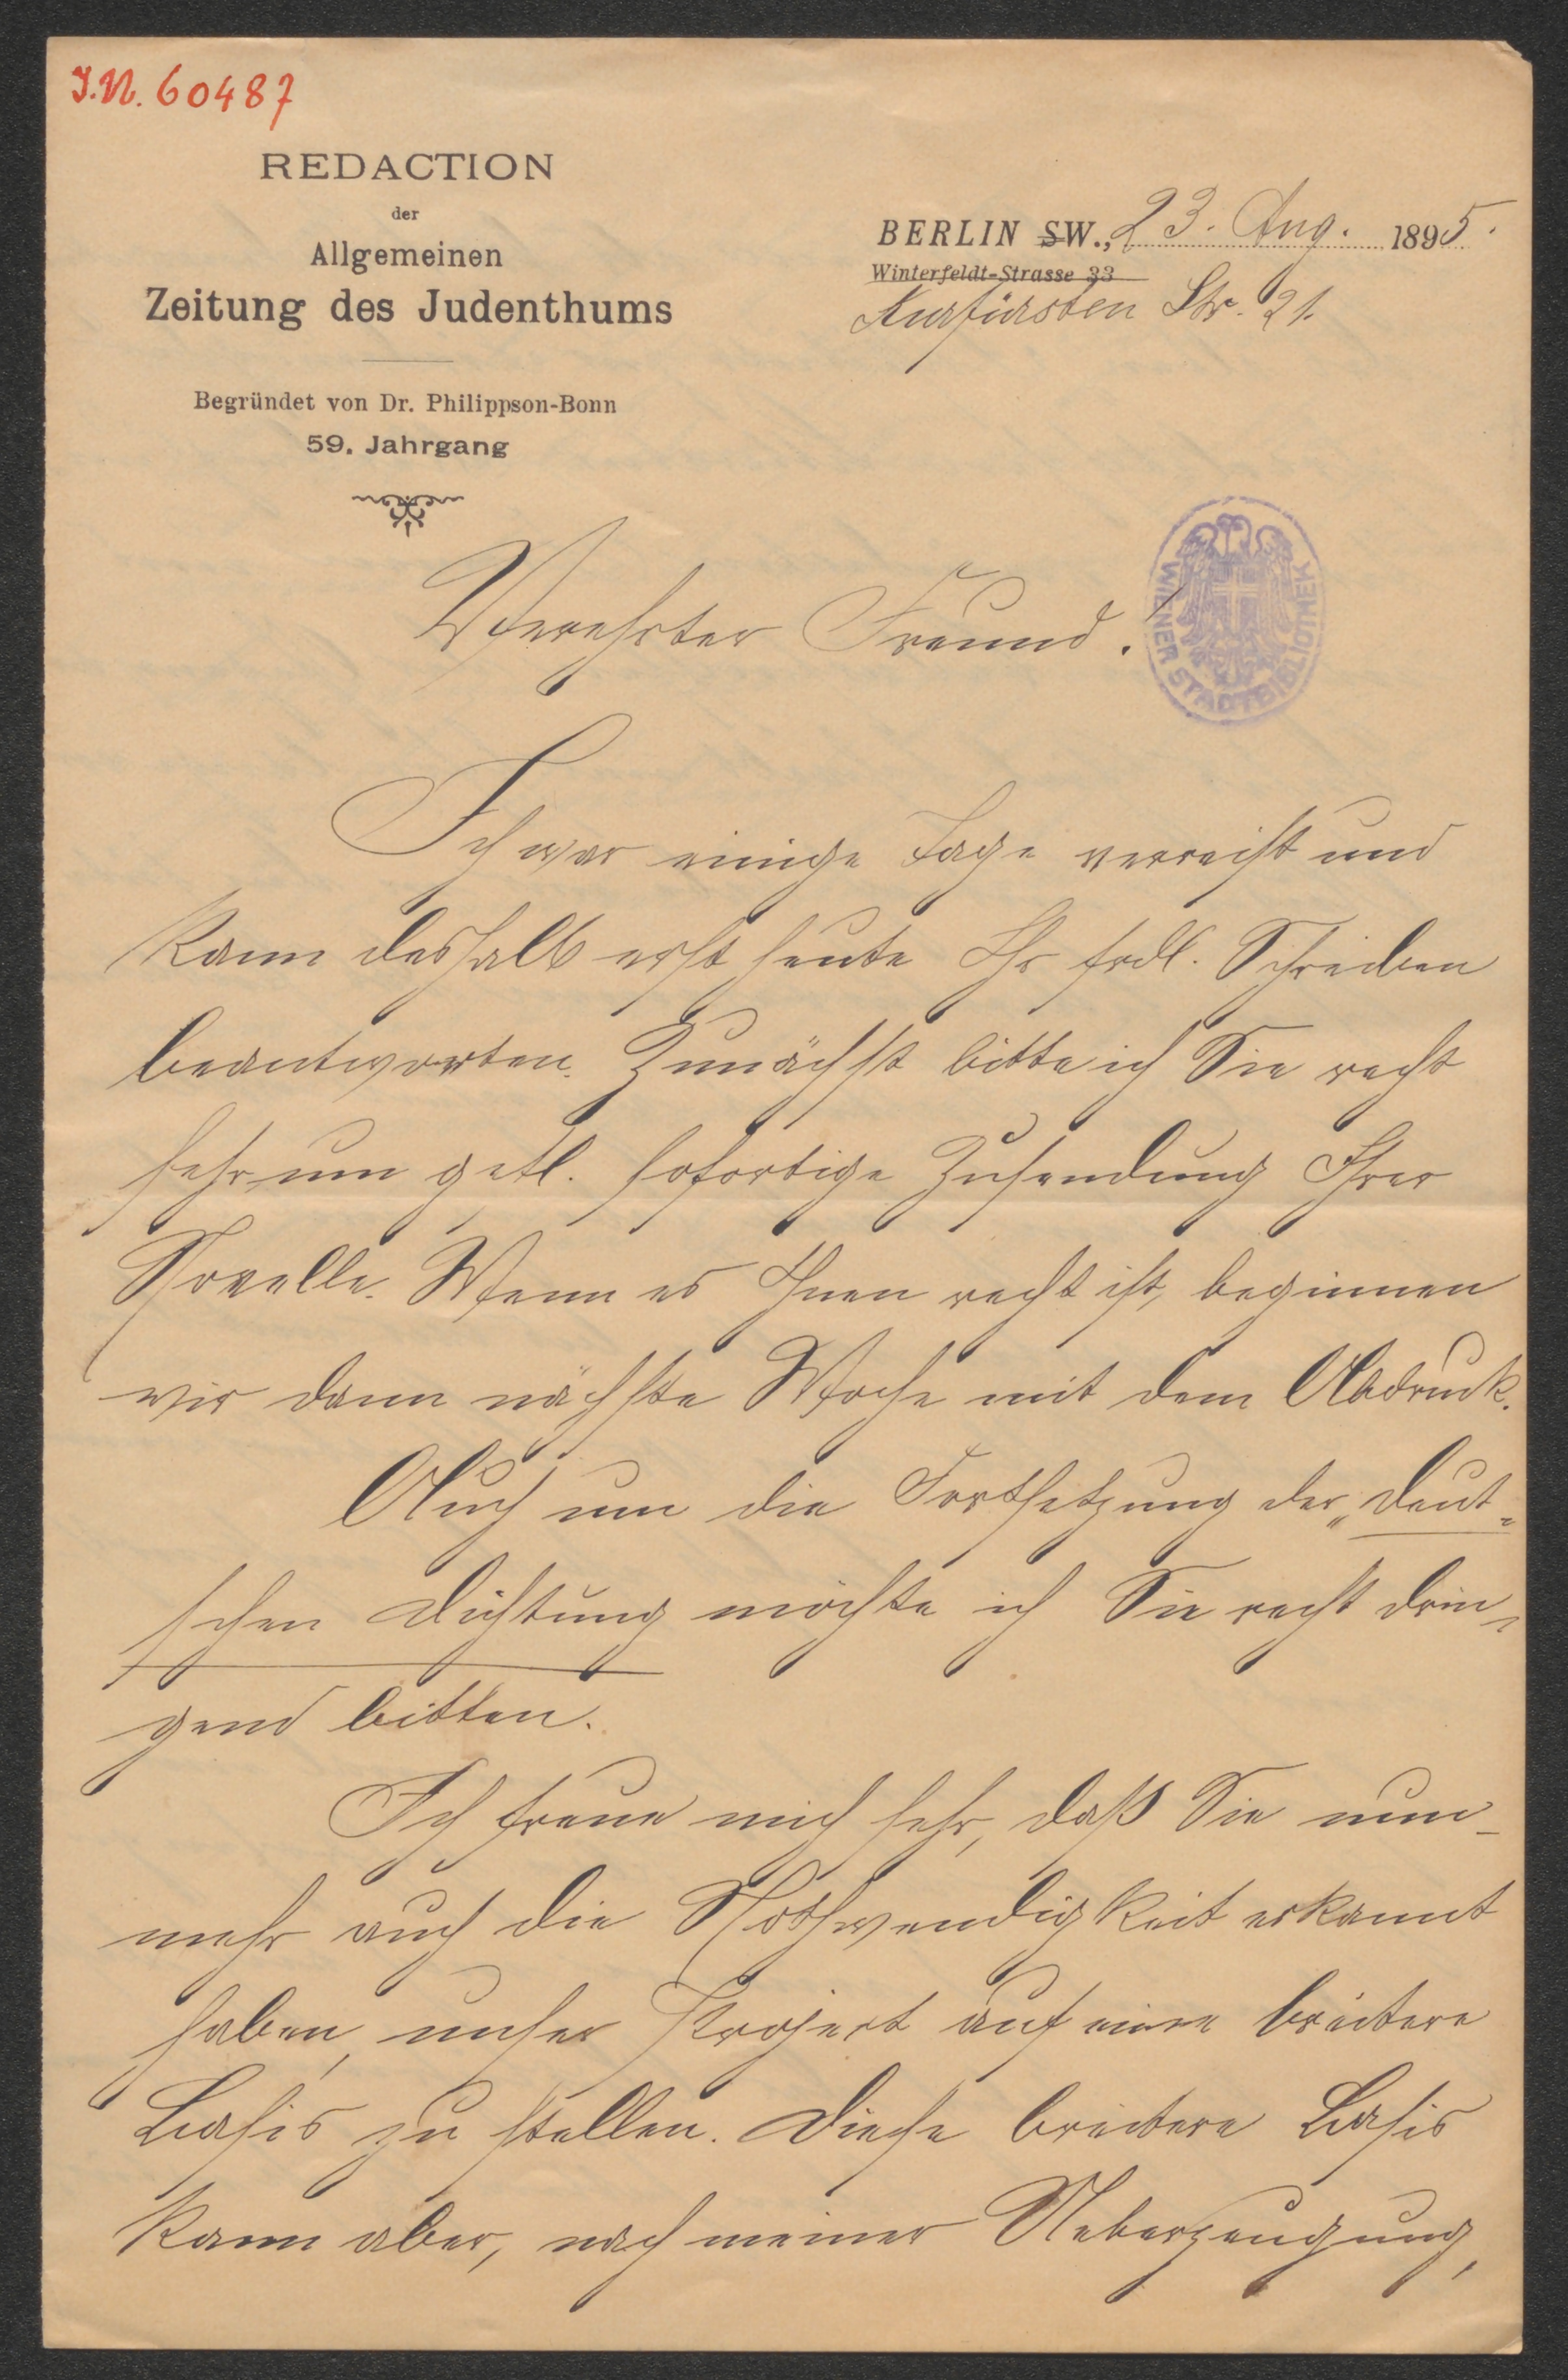 J.N. 60487
REDACTION
der
Allgemeinen
Zeitung des Judenthums
Begründet von Dr. Philippson-Bonn
59. Jahrgang
BERLIN SW., 23. Aug. 1895.
Winterfeldt-Strasse 33
Kurfürsten Str. 21.
WIENER STADTBIBLIOTHEK
Verehrter Freund!
Ich war einige Tage verreist und
kann deshalb erst heute Ihr frdl. Schreiben
beantworten. Zunächst bitte ich Sie recht
sehr um gefl. sofortige Zusendung Ihrer
Novelle. Wenn es Ihnen recht ist, beginnen
wir dann nächste Woche mit dem Abdruck.
Auch um die Fortsetzung der „Deut-
schen Dichtung möchte ich Sie recht drin-
gend bitten.
Ich freue mich sehr, daß Sie nun-
mehr auch die Nothwendigkeit erkannt
haben, unser Project auf eine breitere
Basis zu stellen. Diese breitere Basis
kann aber, nach meiner Ueberzeugung,